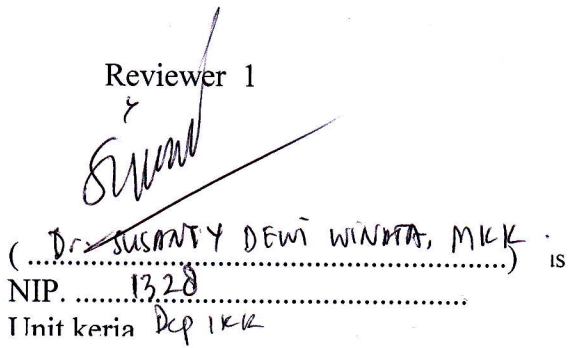 Reviewer 1
( Dr. SUSANTY DEWI WINATA, MKK. ) is
NIP. 1328
Unit kerja Dep IKK